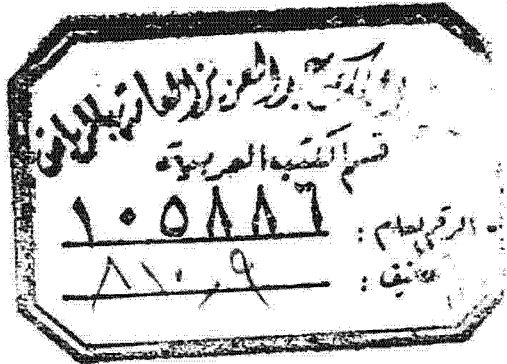 مكتبة الملك عبدالعزيز العامة بالرياض
قسم الكتب العربية
الرقم العام : ١٠٥٨٨٦
تصنيف : ٨١٠,٩